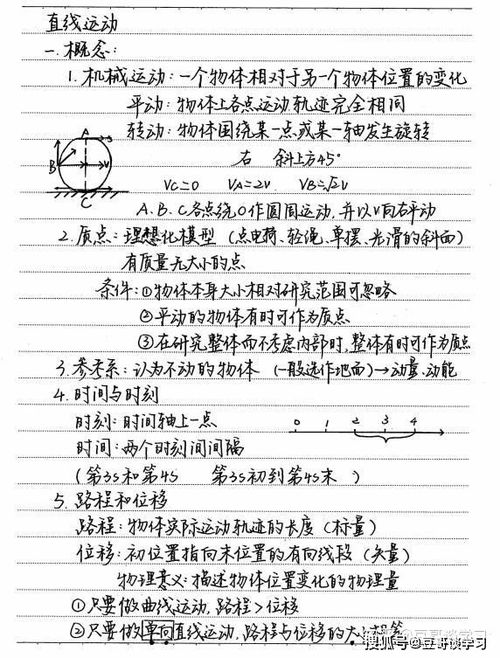 直线运动
一.概念:
1.机械运动:一个物体相对于另一个物体位置的变化
平动:物体上各点运动轨迹完全相同
转动:物体围绕某一点或某一轴发生旋转
A
B
V
C
右 斜上方45°
Vc=0 VA=2V VB=√2V
A.B.C各点绕O作圆周运动,并以V向右平动
2.质点:理想化模型(点电荷、轻绳、单摆、光滑的斜面)
有质量无大小的点
条件:①物体本身大小相对研究范围可忽略
②平动的物体有时可作为质点
③在研究整体而不考虑内部时,整体有时可作为质点
3.参考系:认为不动的物体(一般选作地面)→动量、动能
4.时间与时刻
时刻:时间轴上一点
0 1 2 3 4
时间:两个时刻间间隔
(第3s和第4s 第3s初到第4s末 )
5.路程和位移
路程:物体实际运动轨迹的长度(标量)
位移:初位置指向末位置的有向线段(矢量)
物理意义:描述物体位置变化的物理量
①只要做曲线运动,路程>位移
②只要做单向直线运动,路程与位移的大小相等
搜狐号@豆哥谈学习